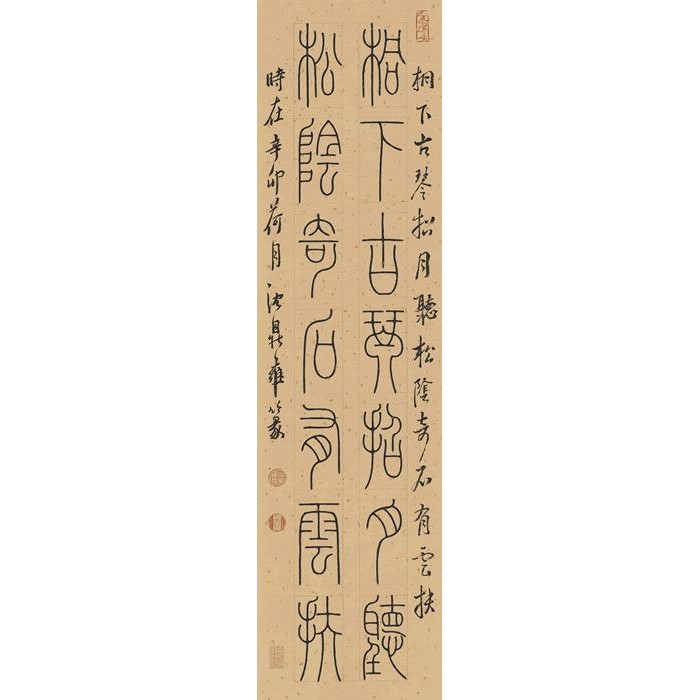 桐下古琴招月聽松陰奇石有雲扶
桐下古琴招月聽
松陰奇石有雲扶
時在辛卯荷月沈鼎雍篆